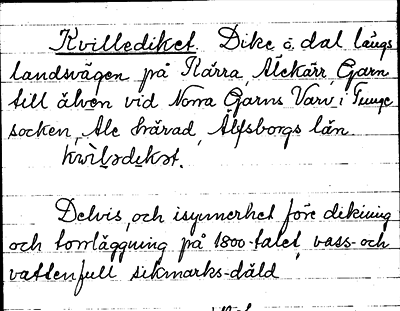 Kvillediket. Dike ö. dal längs
landsvägen på Kärra, Alekärr, Garn
till älven vid Norra Garns Varv i Tunge
socken, Ale härad, Älfsborgs län.
Delvis, och isynnerhet före dikning
och torrläggning på 1800-talet, vass- och
vattenfull sikmarks-dåld